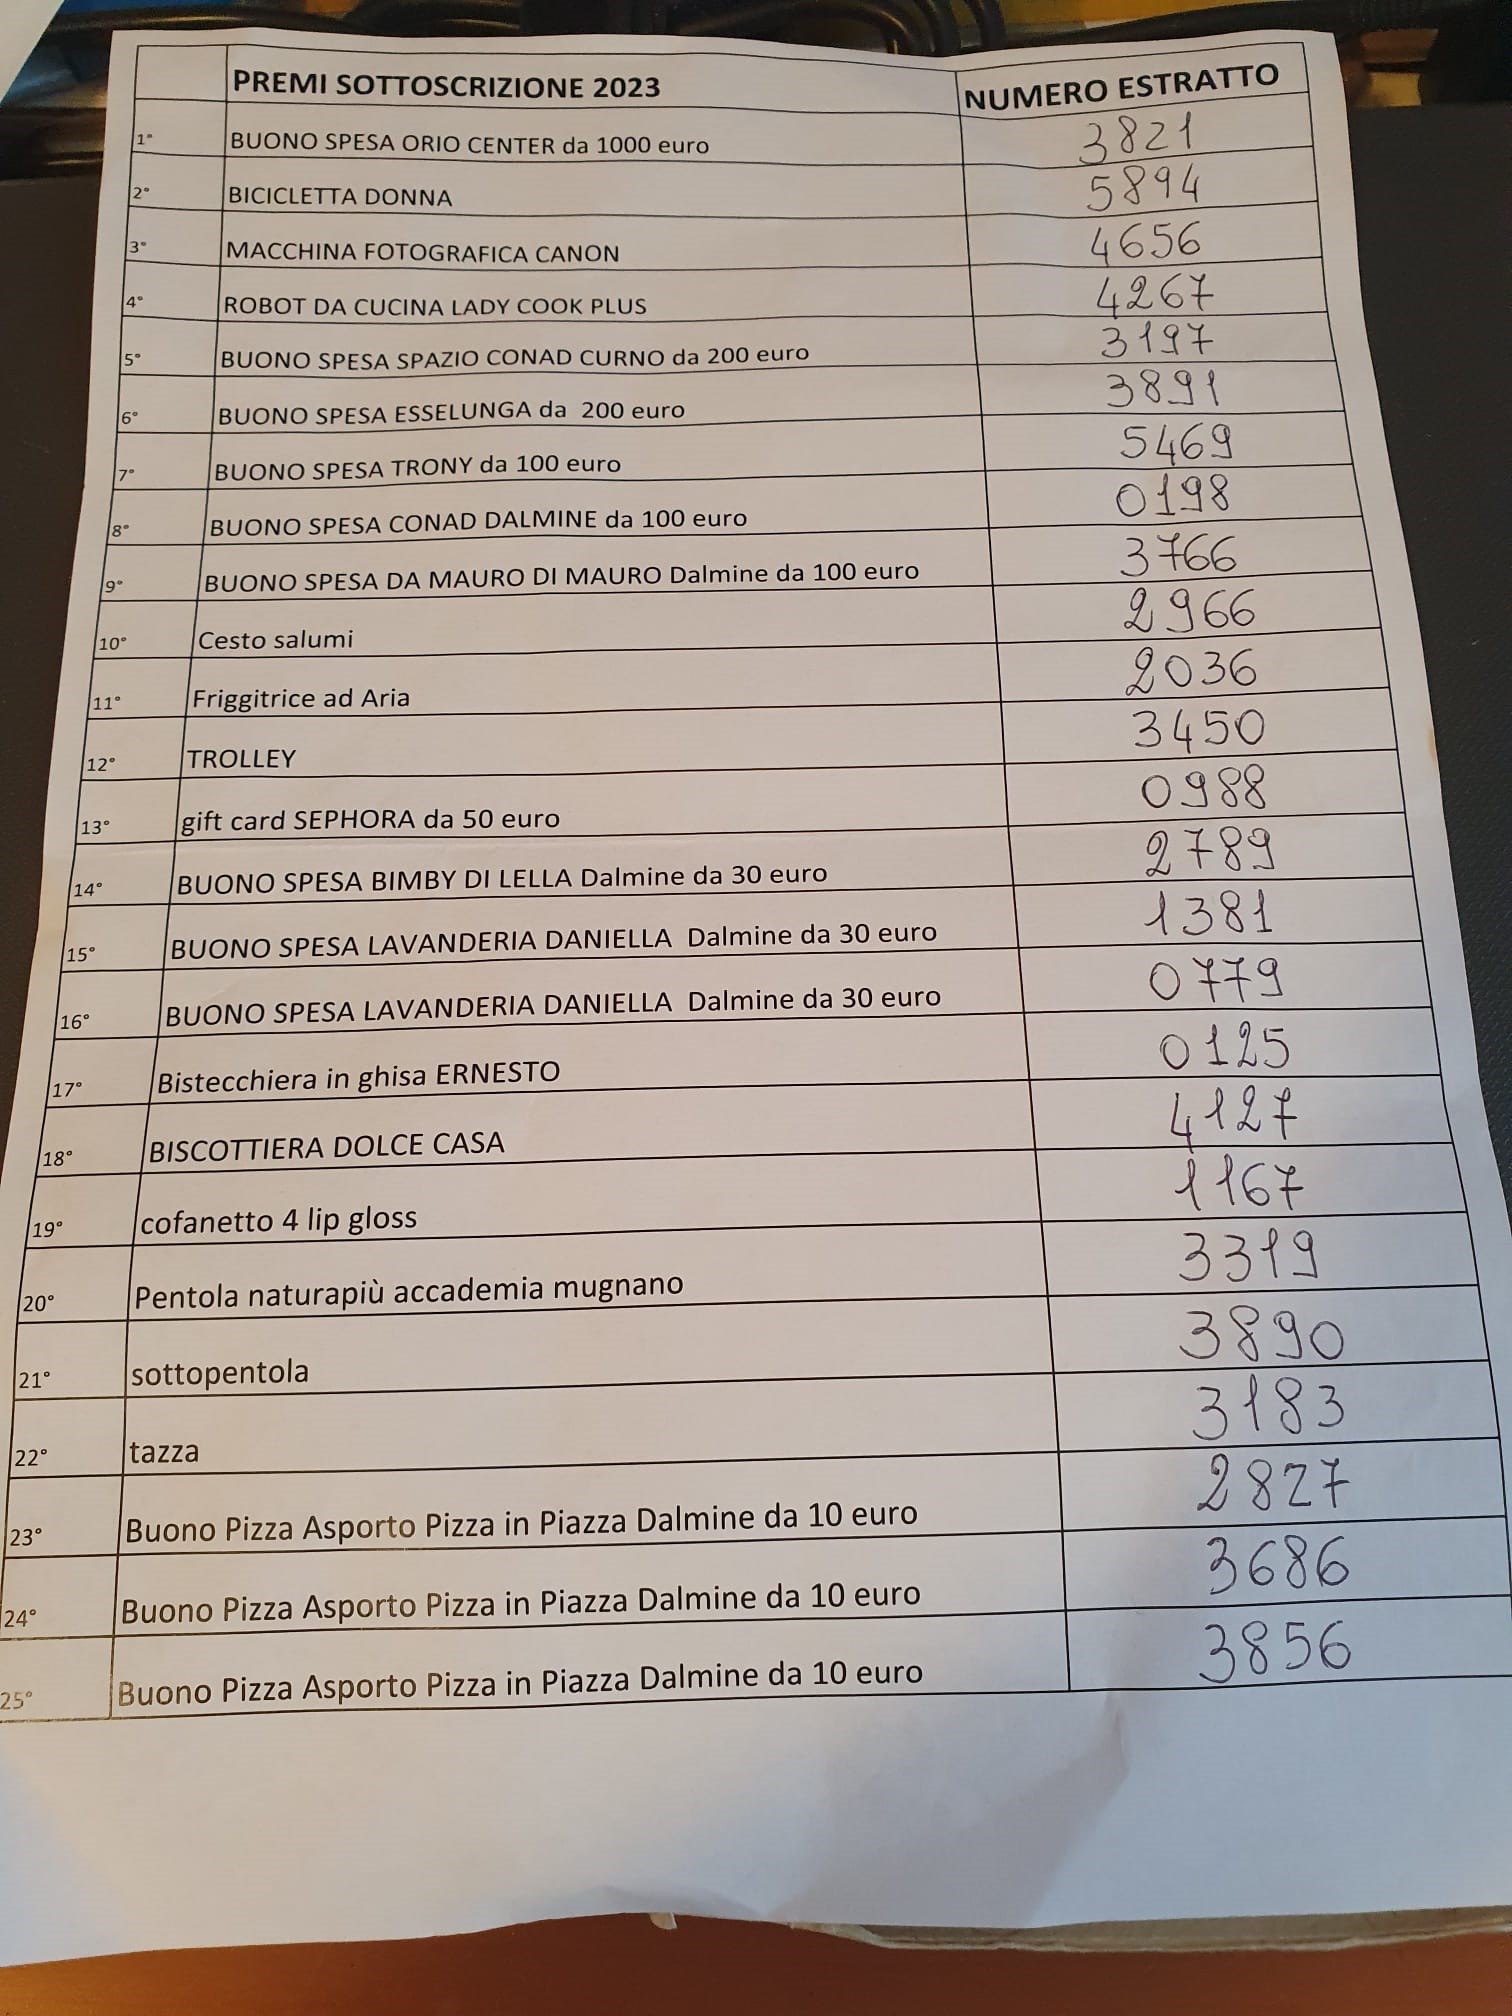 PREMI SOTTOSCRIZIONE 2023 NUMERO ESTRATTO
1° BUONO SPESA ORIO CENTER da 1000 euro 3821
2° BICICLETTA DONNA 5894
3° MACCHINA FOTOGRAFICA CANON 4656
4° ROBOT DA CUCINA LADY COOK PLUS 4267
5° BUONO SPESA SPAZIO CONAD CURNO da 200 euro 3197
6° BUONO SPESA ESSELUNGA da 200 euro 3891
7° BUONO SPESA TRONY da 100 euro 5469
8° BUONO SPESA CONAD DALMINE da 100 euro 0198
9° BUONO SPESA DA MAURO DI MAURO Dalmine da 100 euro 3766
10° Cesto salumi 2966
11° Friggitrice ad Aria 2036
12° TROLLEY 3450
13° gift card SEPHORA da 50 euro 0988
14° BUONO SPESA BIMBY DI LELLA Dalmine da 30 euro 2789
15° BUONO SPESA LAVANDERIA DANIELLA Dalmine da 30 euro 1381
16° BUONO SPESA LAVANDERIA DANIELLA Dalmine da 30 euro 0779
17° Bistecchiera in ghisa ERNESTO 0125
18° BISCOTTIERA DOLCE CASA 4127
19° cofanetto 4 lip gloss 1167
20° Pentola naturapiù accademia mugnano 3319
21° sottopentola 3890
22° tazza 3183
23° Buono Pizza Asporto Pizza in Piazza Dalmine da 10 euro 2827
24° Buono Pizza Asporto Pizza in Piazza Dalmine da 10 euro 3686
25° Buono Pizza Asporto Pizza in Piazza Dalmine da 10 euro 3856